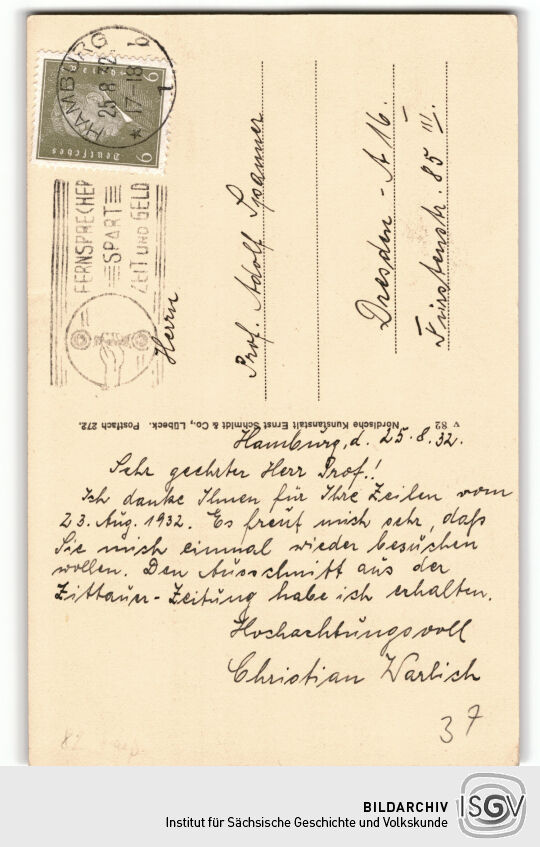 HAMBURG
25.8.32.
17-18
* b
1
6
Deutsches
6
FERNSPRECHER
SPART
ZEIT UND GELD
Herrn
Prof. Adolf Spanner
Dresden-A 16.
Fürstenstr. 85 III.
Nordische Kunstanstalt Ernst Schmidt & Co., Lübeck. Postfach 272.
V 82
Hamburg, d. 25.8.32.
Sehr geehrter Herr Prof.!
Ich danke Ihnen für Ihre Zeilen vom
23. Aug. 1932. Es freut mich sehr, daß
Sie mich einmal wieder besuchen
wollen. Den Ausschnitt aus der
Zittauer-Zeitung habe ich erhalten.
Hochachtungsvoll
Christian Warlich
37
BILDARCHIV
Institut für Sächsische Geschichte und Volkskunde
ISGV